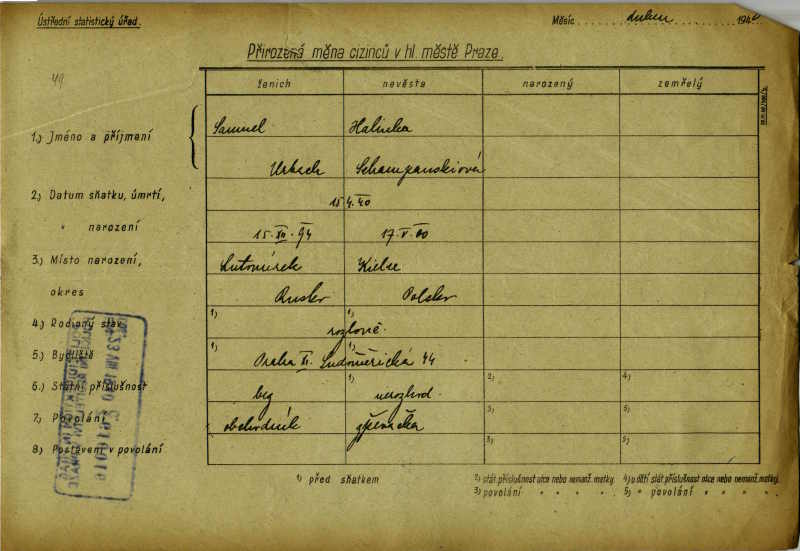 Ústřední statistický úřad.
Měsíc duben 1940
Přirozená měna cizinců v hl. městě Praze.
49
ženich nevěsta narozený zemřelý
1.) Jméno a příjmení
Samuel Halinka
Urbach Schampanskiová
2.) Datum sňatku, úmrtí,
15.4.40
" narození
15.XII.94 17.V.00
3.) Místo narození,
Lutomirsk Kielce
okres
Rusko Polsko
4.) Rodinný stav
1) 1)
rozlově.
5.) Bydliště
1) 1)
Praha XI. Ludoměřická 44
6.) Státní příslušnost
bez 1) nerozhod. 2) 4)
7.) Povolání
obchodník zpěvačka 3) 5)
8.) Postavení v povolání
3) 5)
1) před sňatkem
2) stát. příslušnost otce nebo nemanž. matky.
3) povolání " " " "
4) u dětí stát. příslušnost otce nebo nemanž. matky.
5) " povolání " " "